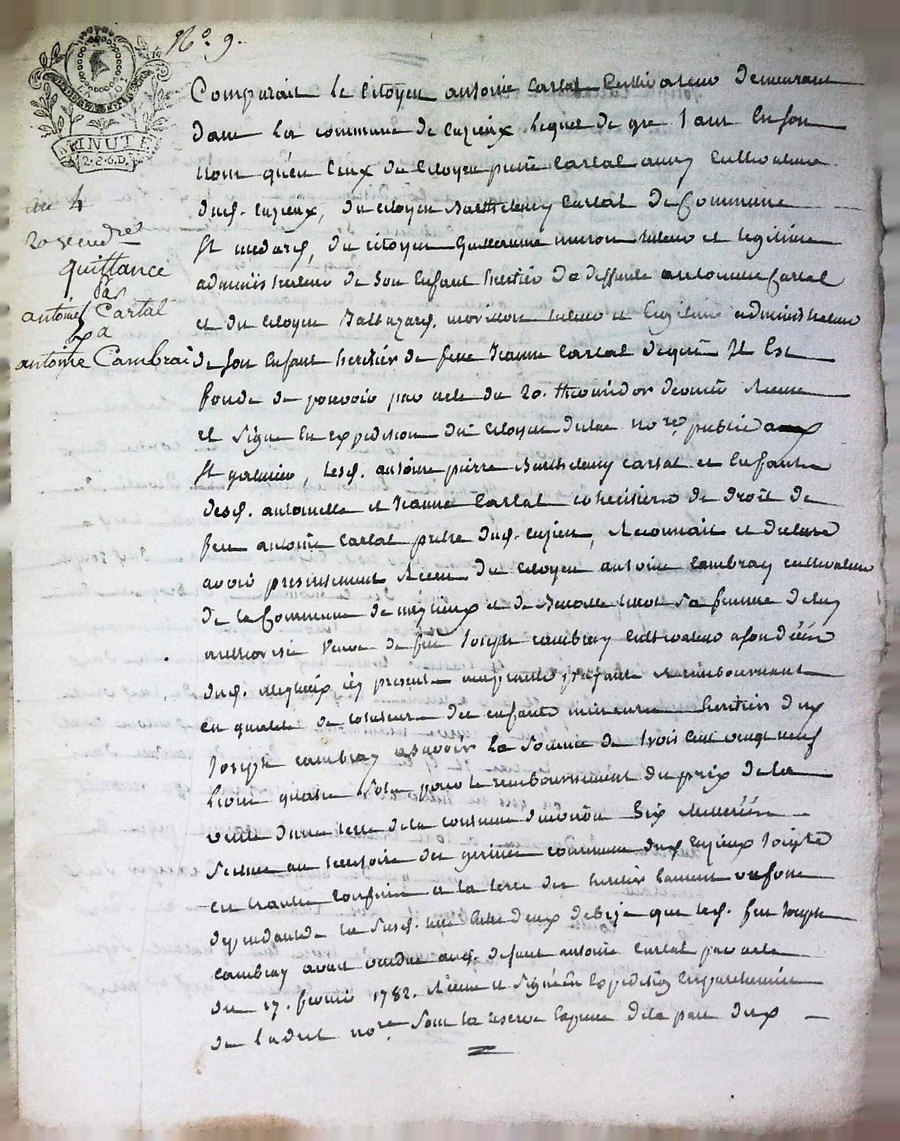 No. 9.
MINUTE
2.S.6.D.
an 4
20 vendre
quittance
par
antoine Cartal
a
antoine Cambrai
Comparait le Citoyen antoine Cartal Cultivateur demeurant
dans la commune de Cuzieux, lequel de gré tant en son
nom qu'en ceux du Citoyen pierre Cartal aussy Cultivateur
dud. Cuzieux, du citoyen Barthelemy Cartal de Commune
St medard, du citoyen Guillaume tuteur et legitime
administrateur de son Enfant heritier de deffunte antoinette Cartal
et du Citoyen Baltazard tuteur et legitime administrateur
de son Enfant heritier de feue Jeanne Cartal desquels Il Est
fondé de pouvoir par acte du 20. thermidor dernier Receu
et signé En expedition du Citoyen nore. public a
St galmier, lesd. antoine pierre Barthelemy Cartal et Enfants
desd. antoinette et Jeanne Cartal coheritiers de droit de
feu antoine Cartal pretre dud. Cuzieu, Reconnait et declare
avoir presentement Receu du Citoyen antoine Cambray cultivateur
de la Commune de meylieux et de sa femme de luy
authorisée veuve de feu Joseph Cambray Cultivateur a son décès
dud. meylieux icy present Remboursant
En qualité de tuteur des enfants mineurs heritiers dud
Joseph Cambray a sçavoir la somme de trois cent vingt neuf
livres quatre sols pour le remboursement du prix de la
vente d'une terre de la contenue d'environ Six
Scituee au territoire des commune dud Cuzieux Joignt
la terre des heritiers laurent
dependante de la Susd. de bize que led. feu Joseph
Cambray avait vendue aud. defunt antoine Cartal par acte
du 17. fevrier 1782. Receu et signé En Expedition En parchemin
de ladit nore. sous la reserve Expresse de la part dud